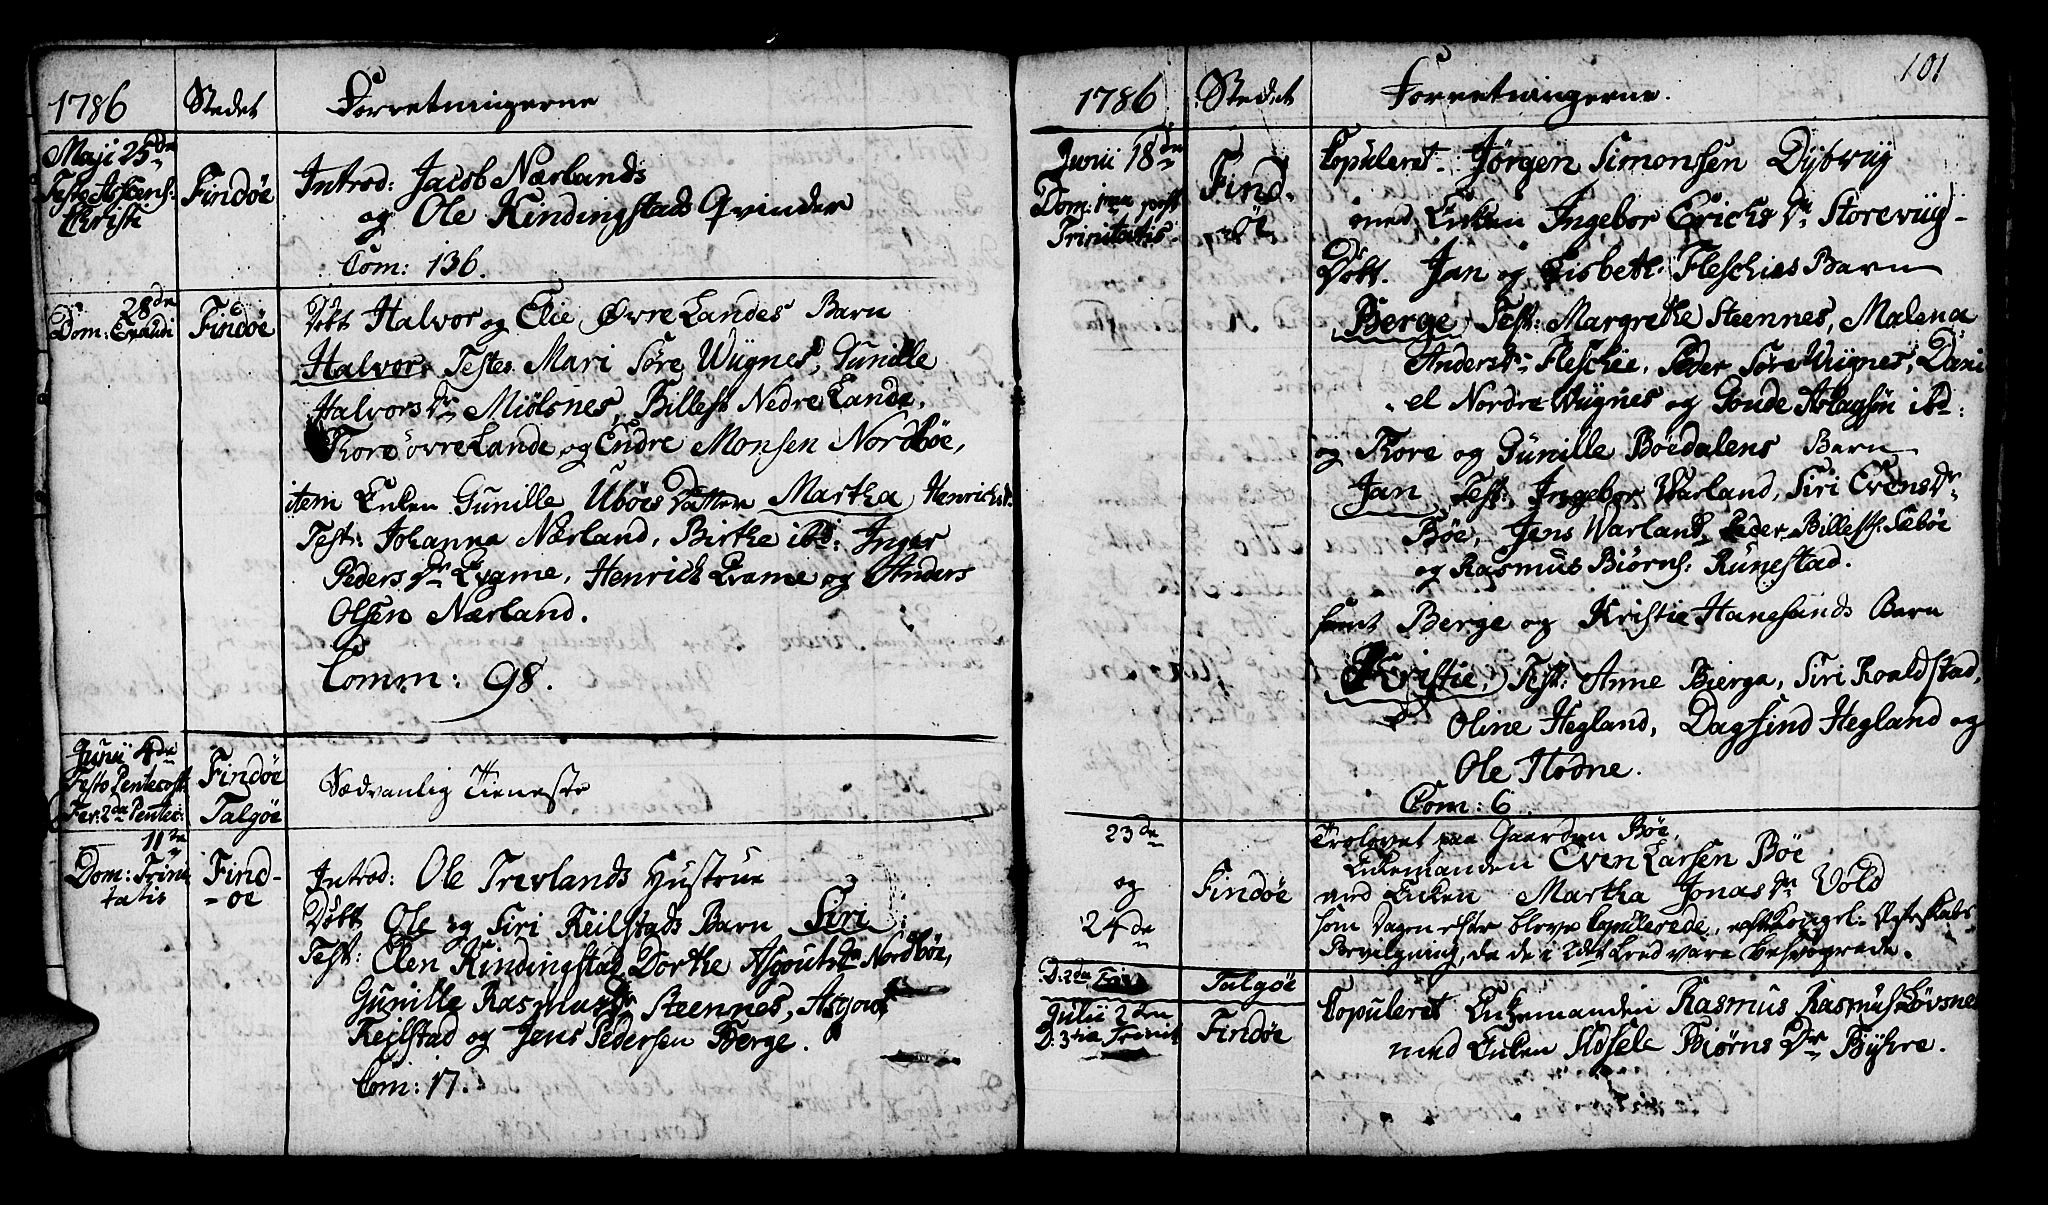 1786 Stedet Forretningerne
Maji 25de
Festo Ascens:
Christi
Findöe
Introd: Jacob Nærlands
og Ole Kindingstads Qvinder
Com: 136.
28de
Dom: Exaudi
Findöe
Döbt Halvor og Elie Øvre Landes Barn
Halvor. Testes Mari Søre Wügnes, Gunille
Halvors Dr Miölsnes, Billest Nedre Lande,
Tore övre Lande og Endre Monsen Nordböe,
item Enken Gunille Uböes Datter Martha Henrichsd.
Test: Johanna Nærland, Birthe ibd: Inger
Peders Dr Evame, Henrich Evame og Anders
Olsen Nærland.
Comm: 98.
Junii 4de
Festo Pentecost:
Fer: 2da Pentec:
Findöe
Talgöe
Sædvanlig Tieneste
11te
Dom: Trini
tatis
Find-
-oe
Introd: Ole Trevlands Hustrue
Döbt Ole og Siri Reilstads Barn Siri
Test: Elen Kindingstad Dorthe Asgouts Dr Nordböe,
Gunille Rasmus Dr Steennes, Asgout
Reilstad og Jens Pedersen Berge.
Com: 17.
101
1786 Stedet Forretningerne.
Junii 18de
Dom: 1ma post
Trinitatis
Find-
-öe
Copuleret. Jörgen Simonsen Dybvüg
med Enken Ingebor Erichs Dr Storevüg-
Döbt. Jan og Lisbeth Fleschies Barn
Berge Test: Margrethe Steennes, Malena
Anders Dr Fleschie, Peder Søre Wügnes, Dani
el Nordre Wügnes og Goude Aslagsøn ibd:
og Tore og Gunille Böedalens Barn
Jan Test: Ingebor Warland, Siri Evens Dr
Böe, Jens Warland, Peder Billest: Seböe
og Rasmus Biørns: Runestad.
samt Berge og Kristie Hanesunds Barn
Kristie, Test: Anne Bierga, Siri Roaldstad,
Oline Hegland, Dagfind Hegland og
Ole Flodne.
Com: 6
23de
og
24de
Findöe
Trolovet paa Gaarden Böe,
Enkemanden Even Larsen Böe
med Enken Martha Jonas Dr Vold
som Dagen efter bleve Copulerede, efter Kongel: Ægteskabs
Bevilgning, da de i 2det Leed vare besvogrede.
D: 2da Trin
Talgöe
Julii 2den
D: 3tia Trinit
Findöe
Copuleret Enkemanden Rasmus Rasmus: Lövsnes
med Enken Sidsele Biørns Dr Byhre.